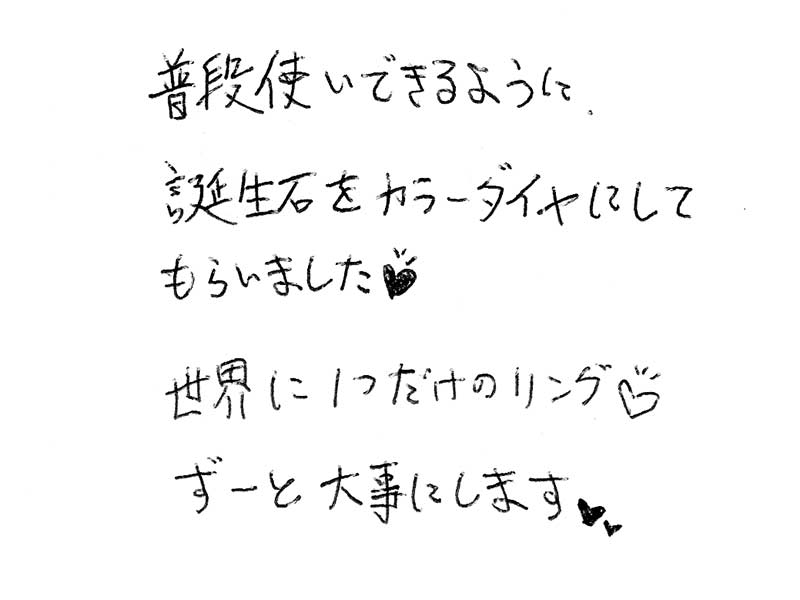 普段使いできるように
誕生石をカラーダイヤにして
もらいました♥
世界に1つだけのリング♡
ずーと大事にします♥♥